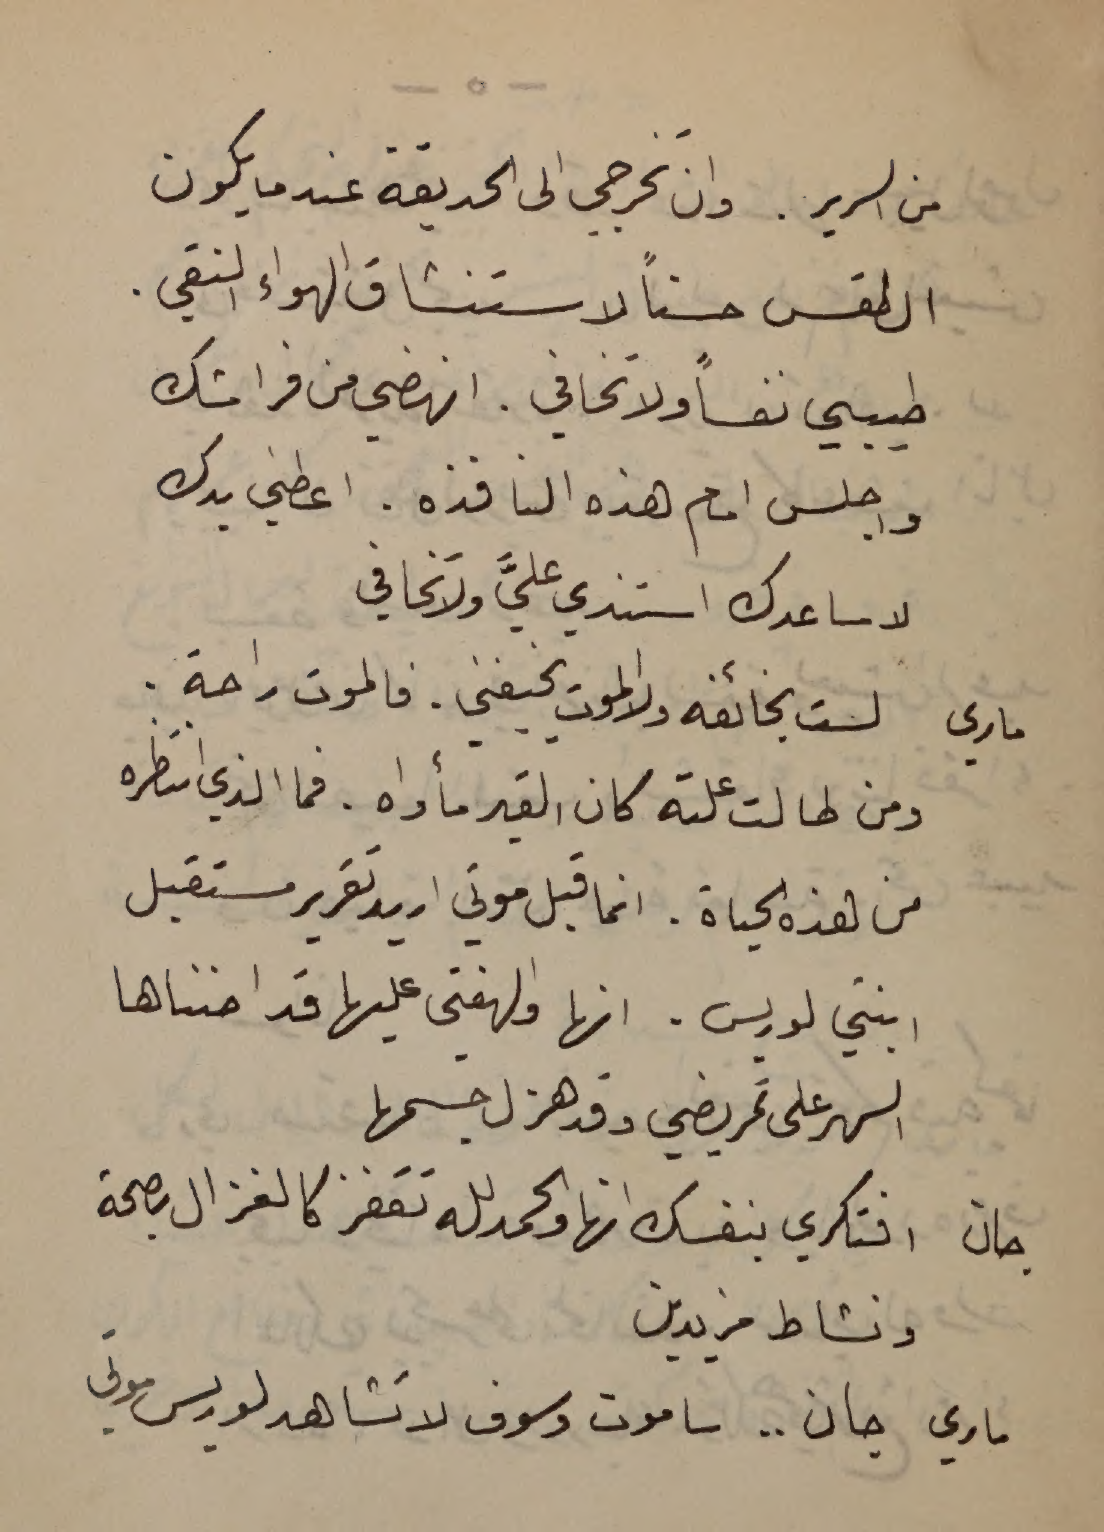 — ٥ —
من السرير . وان تخرجي الى الحديقة عندما يكون
الطقس حسناً لاستنشاق الهواء النقي .
طيبي نفساً ولا تخافي . انهضي من فراشك
واجلس امام هذه النافذه . اعطني يدك
لاساعدك استندي عليَّ ولا تخافي
ماري لست بخائفه ولا الموت يخيفني . فالموت راحة .
ومن طالت علته كان القبر مأواه . فما الذي انتظره
من هذه الحياة . انما قبل موتي اريد تقرير مستقبل
ابنتي لوريس . انها والهفتي عليها قد اضناها
السهر على تمريضي وقد هزل جسمها
جان افتكري بنفسك انها والحمد لله تقفز كالغزال بصحة
ونشاط مزيدين
ماري جان .. ساموت وسوف لا تشاهد لوريس موتي